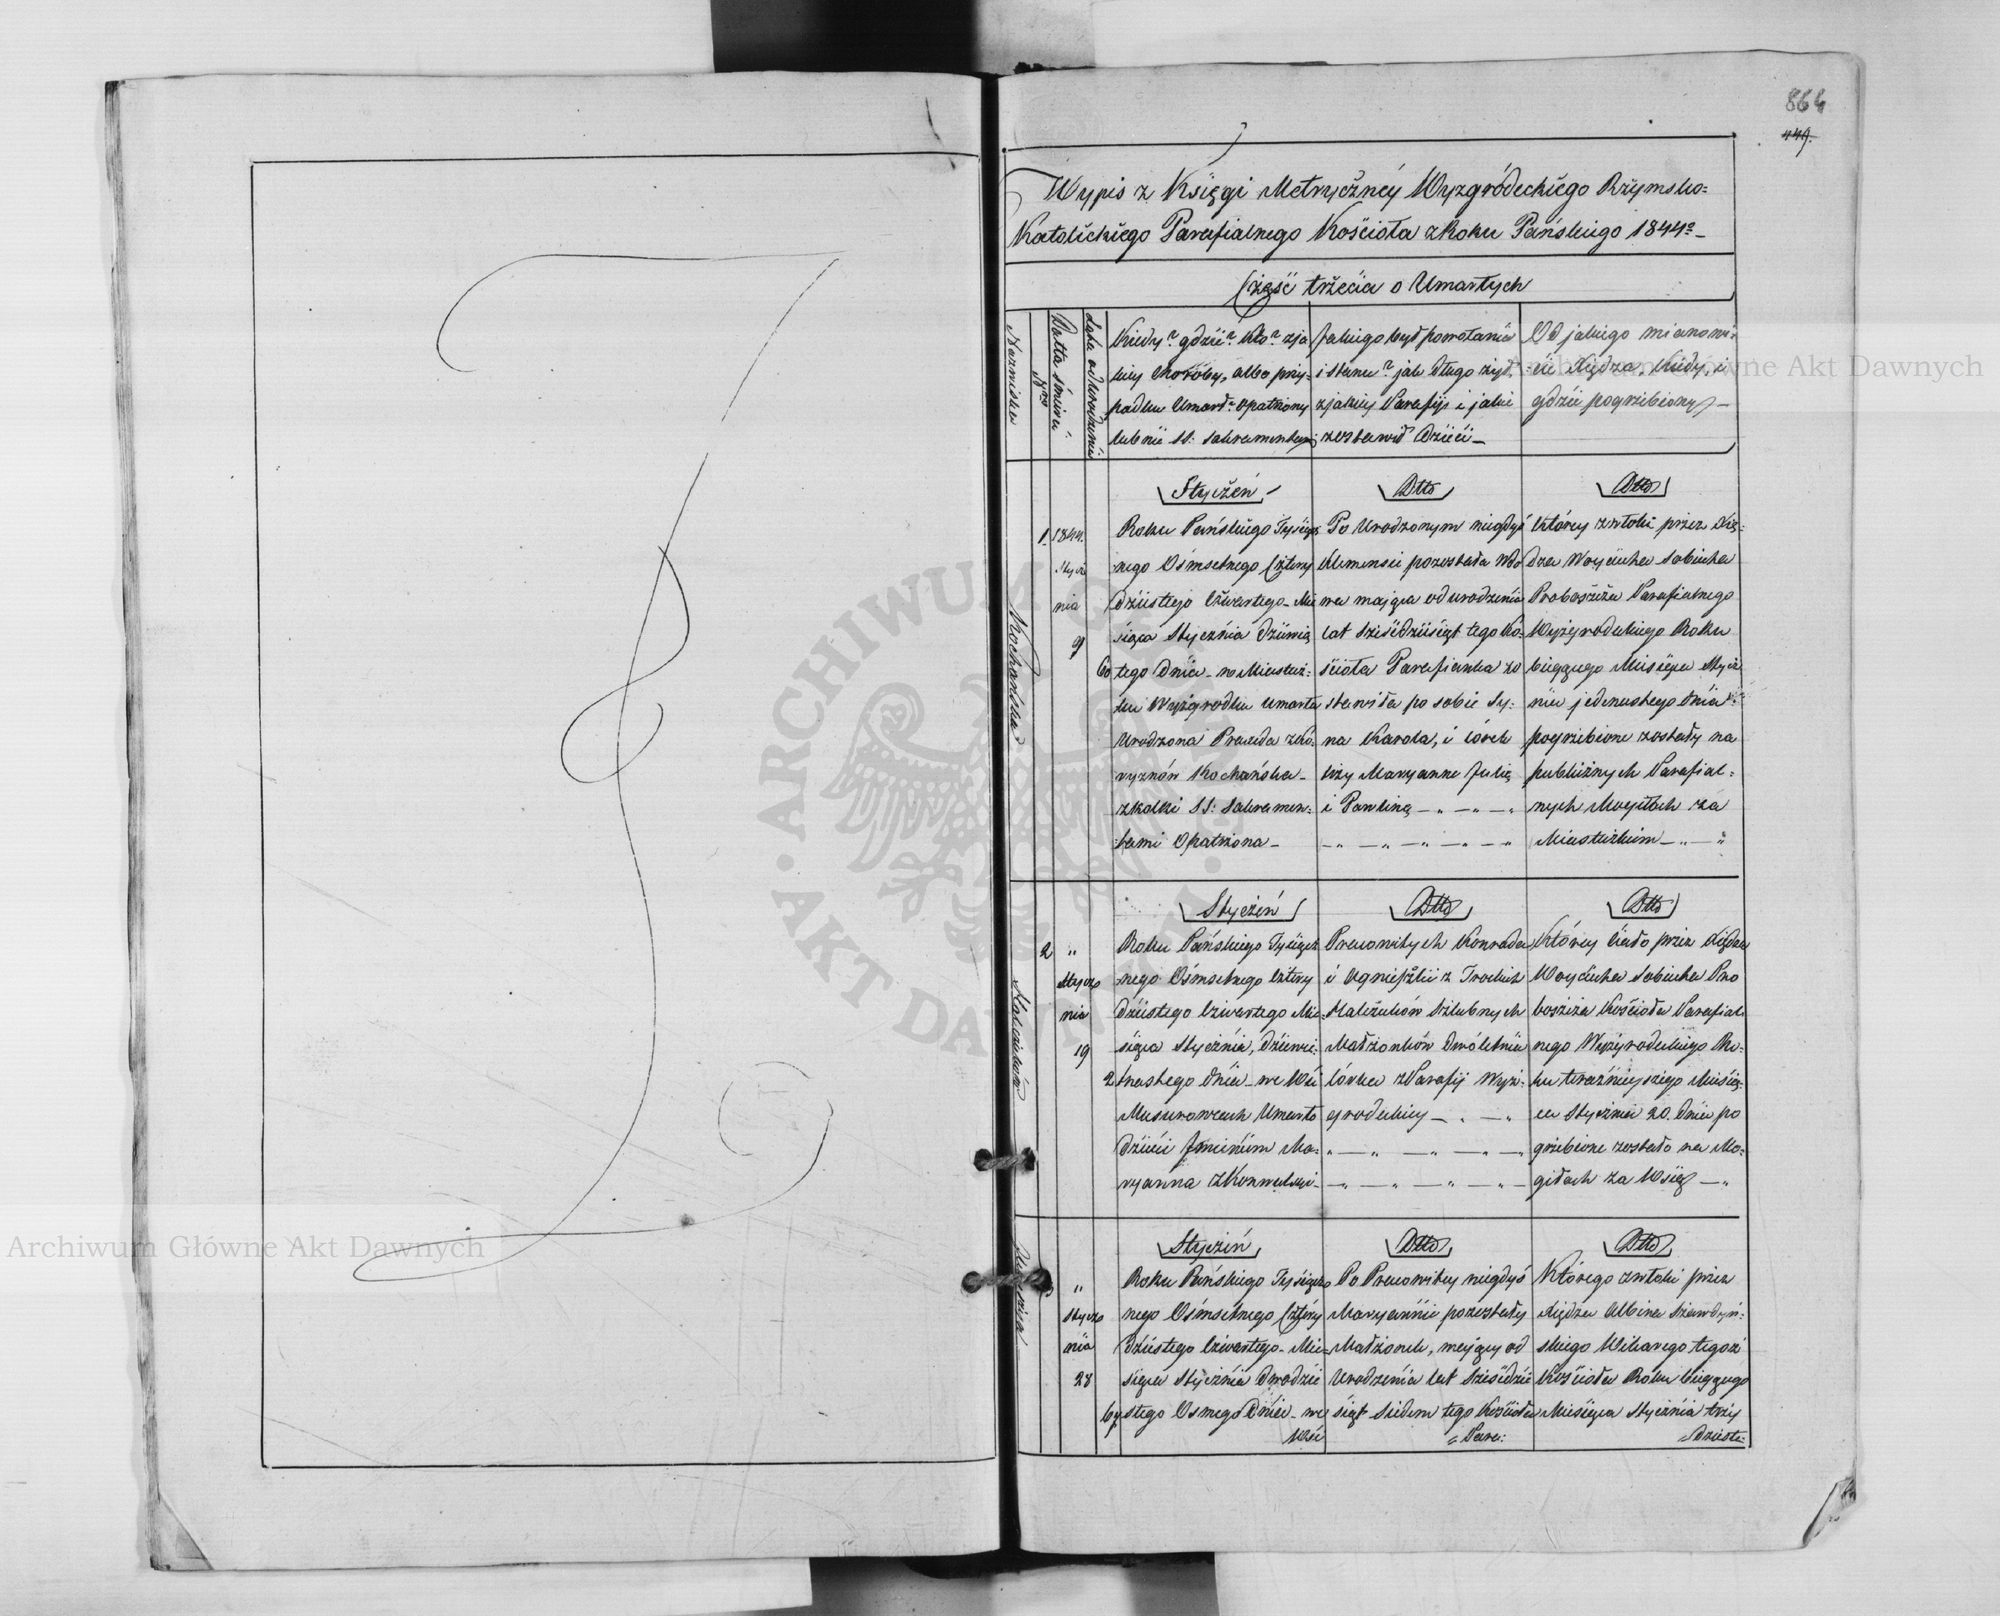 864
449.
Wypis z Księgi Metrycznéy Wyzgródeckiego Rzymsko=
Katolickiego Parafialnego Kościoła z Roku Pańskiego 1844º
Część trzecia o Umarłych
Nazwiska
Nro
Datta śmierci
Lata od Urodzenia
Kiedy? gdzie? kto? z ja
kiey choroby, albo przy-
padku Umarł? opatrzony
lub nie SS: Sakramentami
Jakiego był powołania
i stanu? jak długo żył,
z jakiey Parafii i jakie
zostawił Dzieci
Od jakiego mianowi-
cie Xiędza, kiedy, i
gdzie pogrzebiony
Kochańska
1.
1844.
Stycz
nia
9
60
Styczeń
Roku Pańskiego Tysiącz
nego Ośmsetnego Cztery
dziestego Czwartego Mie
siąca Stycznia dziewią
tego Dnia w Miastecz-
ku Wyżgrodku umarła
Urodzona
Kochańska
z kolki SS: Sakramen-
tami Opatrzona
Dtto
Po Urodzonym niegdyś
Klemensie pozostała Wdo
wa mająca od urodzenia
lat sześćdziesiąt tego Ko-
ścioła Parafianka zo
stawiła po sobie Sy-
na Karola, i córek
trzy Maryannę Julię
i Paulinę
Dtto
Którey zwłoki przez Xię-
dza Woyciecha Sobiecha
Proboszcza Parafialnego
Wyżgrodeckiego Roku
bieżącego Miesiąca Stycz
nia jedenastego dnia
pogrzebione zostały na
publicznych Parafial-
nych Mogiłach za
Miasteczkiem
2
"
Stycz
nia
19
2
Styczeń
Roku Pańskiego Tysiącz
nego Ośmsetnego Cztery
dziestego Czwartego Mie-
siąca Stycznia, dziewię-
tnastego dnia we Wsi
Umarło
dziecie Imieniem Ma-
ryanna z Konwulsyi
Dtto
Pracowitych Konrada
i Agnieszki z
Slubnych
Małżonków Dwóletnia
córka z Parafii Wyż-
grodeckiey
Dtto
Którey Ciało przez Xiędza
Woyciecha Sobiecha Pro
boszcza Kościoła Parafial
nego Wyżgrodeckiego Ro-
ku teraźnieyszego Miesią-
ca Stycznia 20. dnia po
grzebione zostało na Mo-
giłach za Wsią
"
Stycz
nia
28
67
Styczeń
Roku Pańskiego Tysiącz
nego Ośmsetnego Cztery
dziestego Czwartego Mie-
siąca Stycznia dwodzie
stego Osmego Dnia we
Wsi
Dtto
Po Pracowitey niegdyś
Maryannie pozostały
Małżonek, maiący od
Urodzenia lat sześćdzie
siąt siedem tego Kościoła
Para:
Dtto
Którego zwłoki przez
Xiędza Albina
skiego Wikarego tegoż
Kościoła Roku bieżącego
Miesiąca Stycznia trzy
dzieste-
ARCHIWUM GŁÓWNE · AKT DAWNYCH ·
Archiwum Główne Akt Dawnych
Archiwum Główne Akt Dawnych